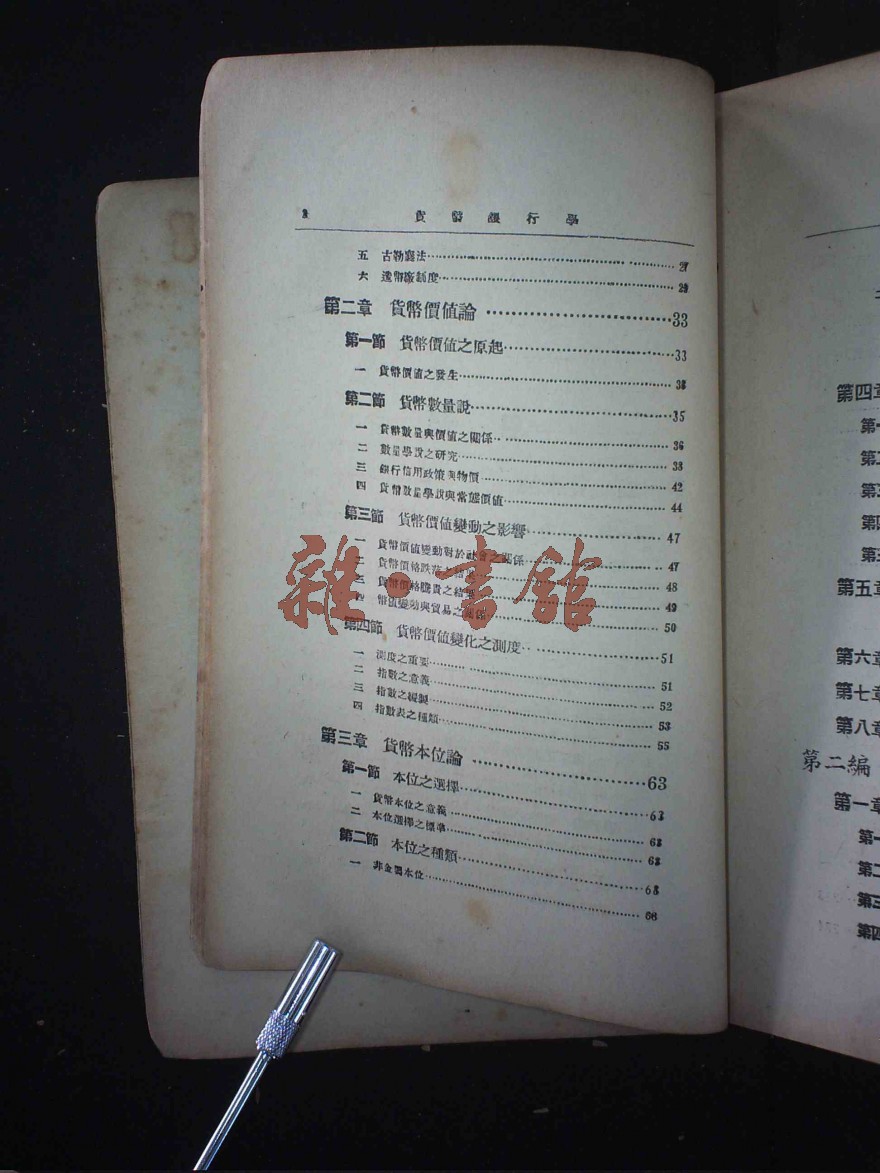 2 貨幣銀行學
五 古勒襄法 27
六 造幣廠制度 29
第二章 貨幣價值論 33
第一節 貨幣價值之原起 33
一 貨幣價值之發生 33
第二節 貨幣數量說 35
一 貨幣數量與價值之關係 36
二 數量學說之研究 38
三 銀行信用政策與物價 42
四 貨幣數量學說與常態價值 44
第三節 貨幣價值變動之影響 47
一 貨幣價值變動對於社會之關係 47
二 貨幣價格跌落之結果 48
三 貨幣價格騰貴之結果 49
四 幣值變動與貿易之關係 50
第四節 貨幣價值變化之測度 51
一 測度之重要 51
二 指數之意義 52
三 指數之編製 53
四 指數表之種類 55
第三章 貨幣本位論 63
第一節 本位之選擇 63
一 貨幣本位之意義 63
二 本位選擇之標準 63
第二節 本位之種類 68
一 非金屬本位 68
雜·書館
第四章
第一
第二
第三
第四
第五章
第六章
第七章
第八章
第二編
第一章
第一
第二
第三
第四